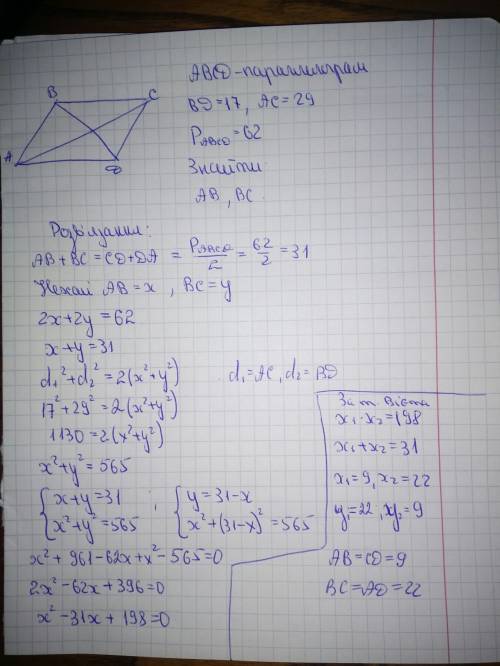 ABCD - паралелограм
BD = 17, AC = 29
P_ABCD = 62
Знайти
AB, BC
B
C
A
D
Розв'язання:
AB + BC = CD + DA = P_ABCD/2 = 62/2 = 31
Нехай AB = x, BC = y
2x + 2y = 62
x + y = 31
d₁² + d₂² = 2(x² + y²) d₁ = AC, d₂ = BD
17² + 29² = 2(x² + y²)
1130 = 2(x² + y²)
x² + y² = 565
{ x + y = 31 ; { y = 31 - x
{ x² + y² = 565 { x² + (31 - x)² = 565
x² + 961 - 62x + x² - 565 = 0
2x² - 62x + 396 = 0
x² - 31x + 198 = 0
За т. Вієта
x₁ · x₂ = 198
x₁ + x₂ = 31
x₁ = 9, x₂ = 22
y₁ = 22, y₂ = 9
AB = CD = 9
BC = AD = 22